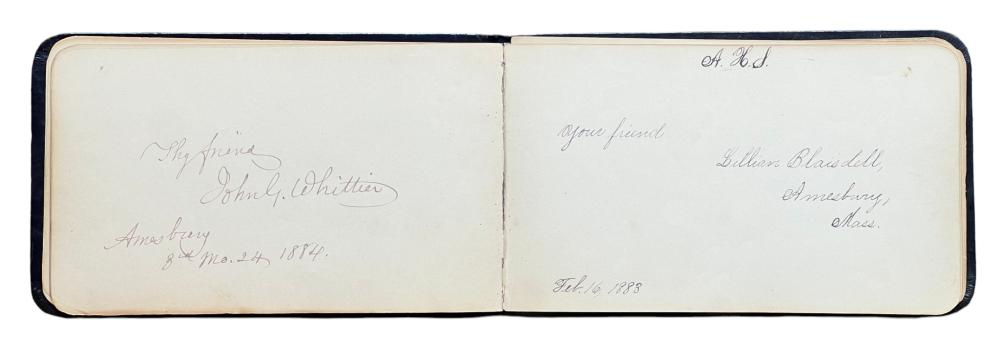 Thy friend
John G. Whittier
Amesbury
8th Mo. 24, 1884.
A. H. S.
Your friend
Lillian Blaisdell,
Amesbury,
Mass.
Feb. 16, 1883